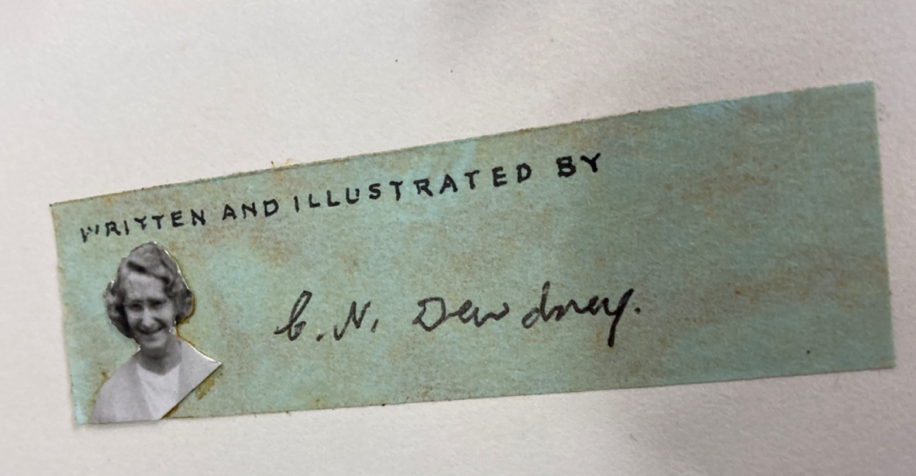 WRITTEN AND ILLUSTRATED BY
C.N. Dewdney.